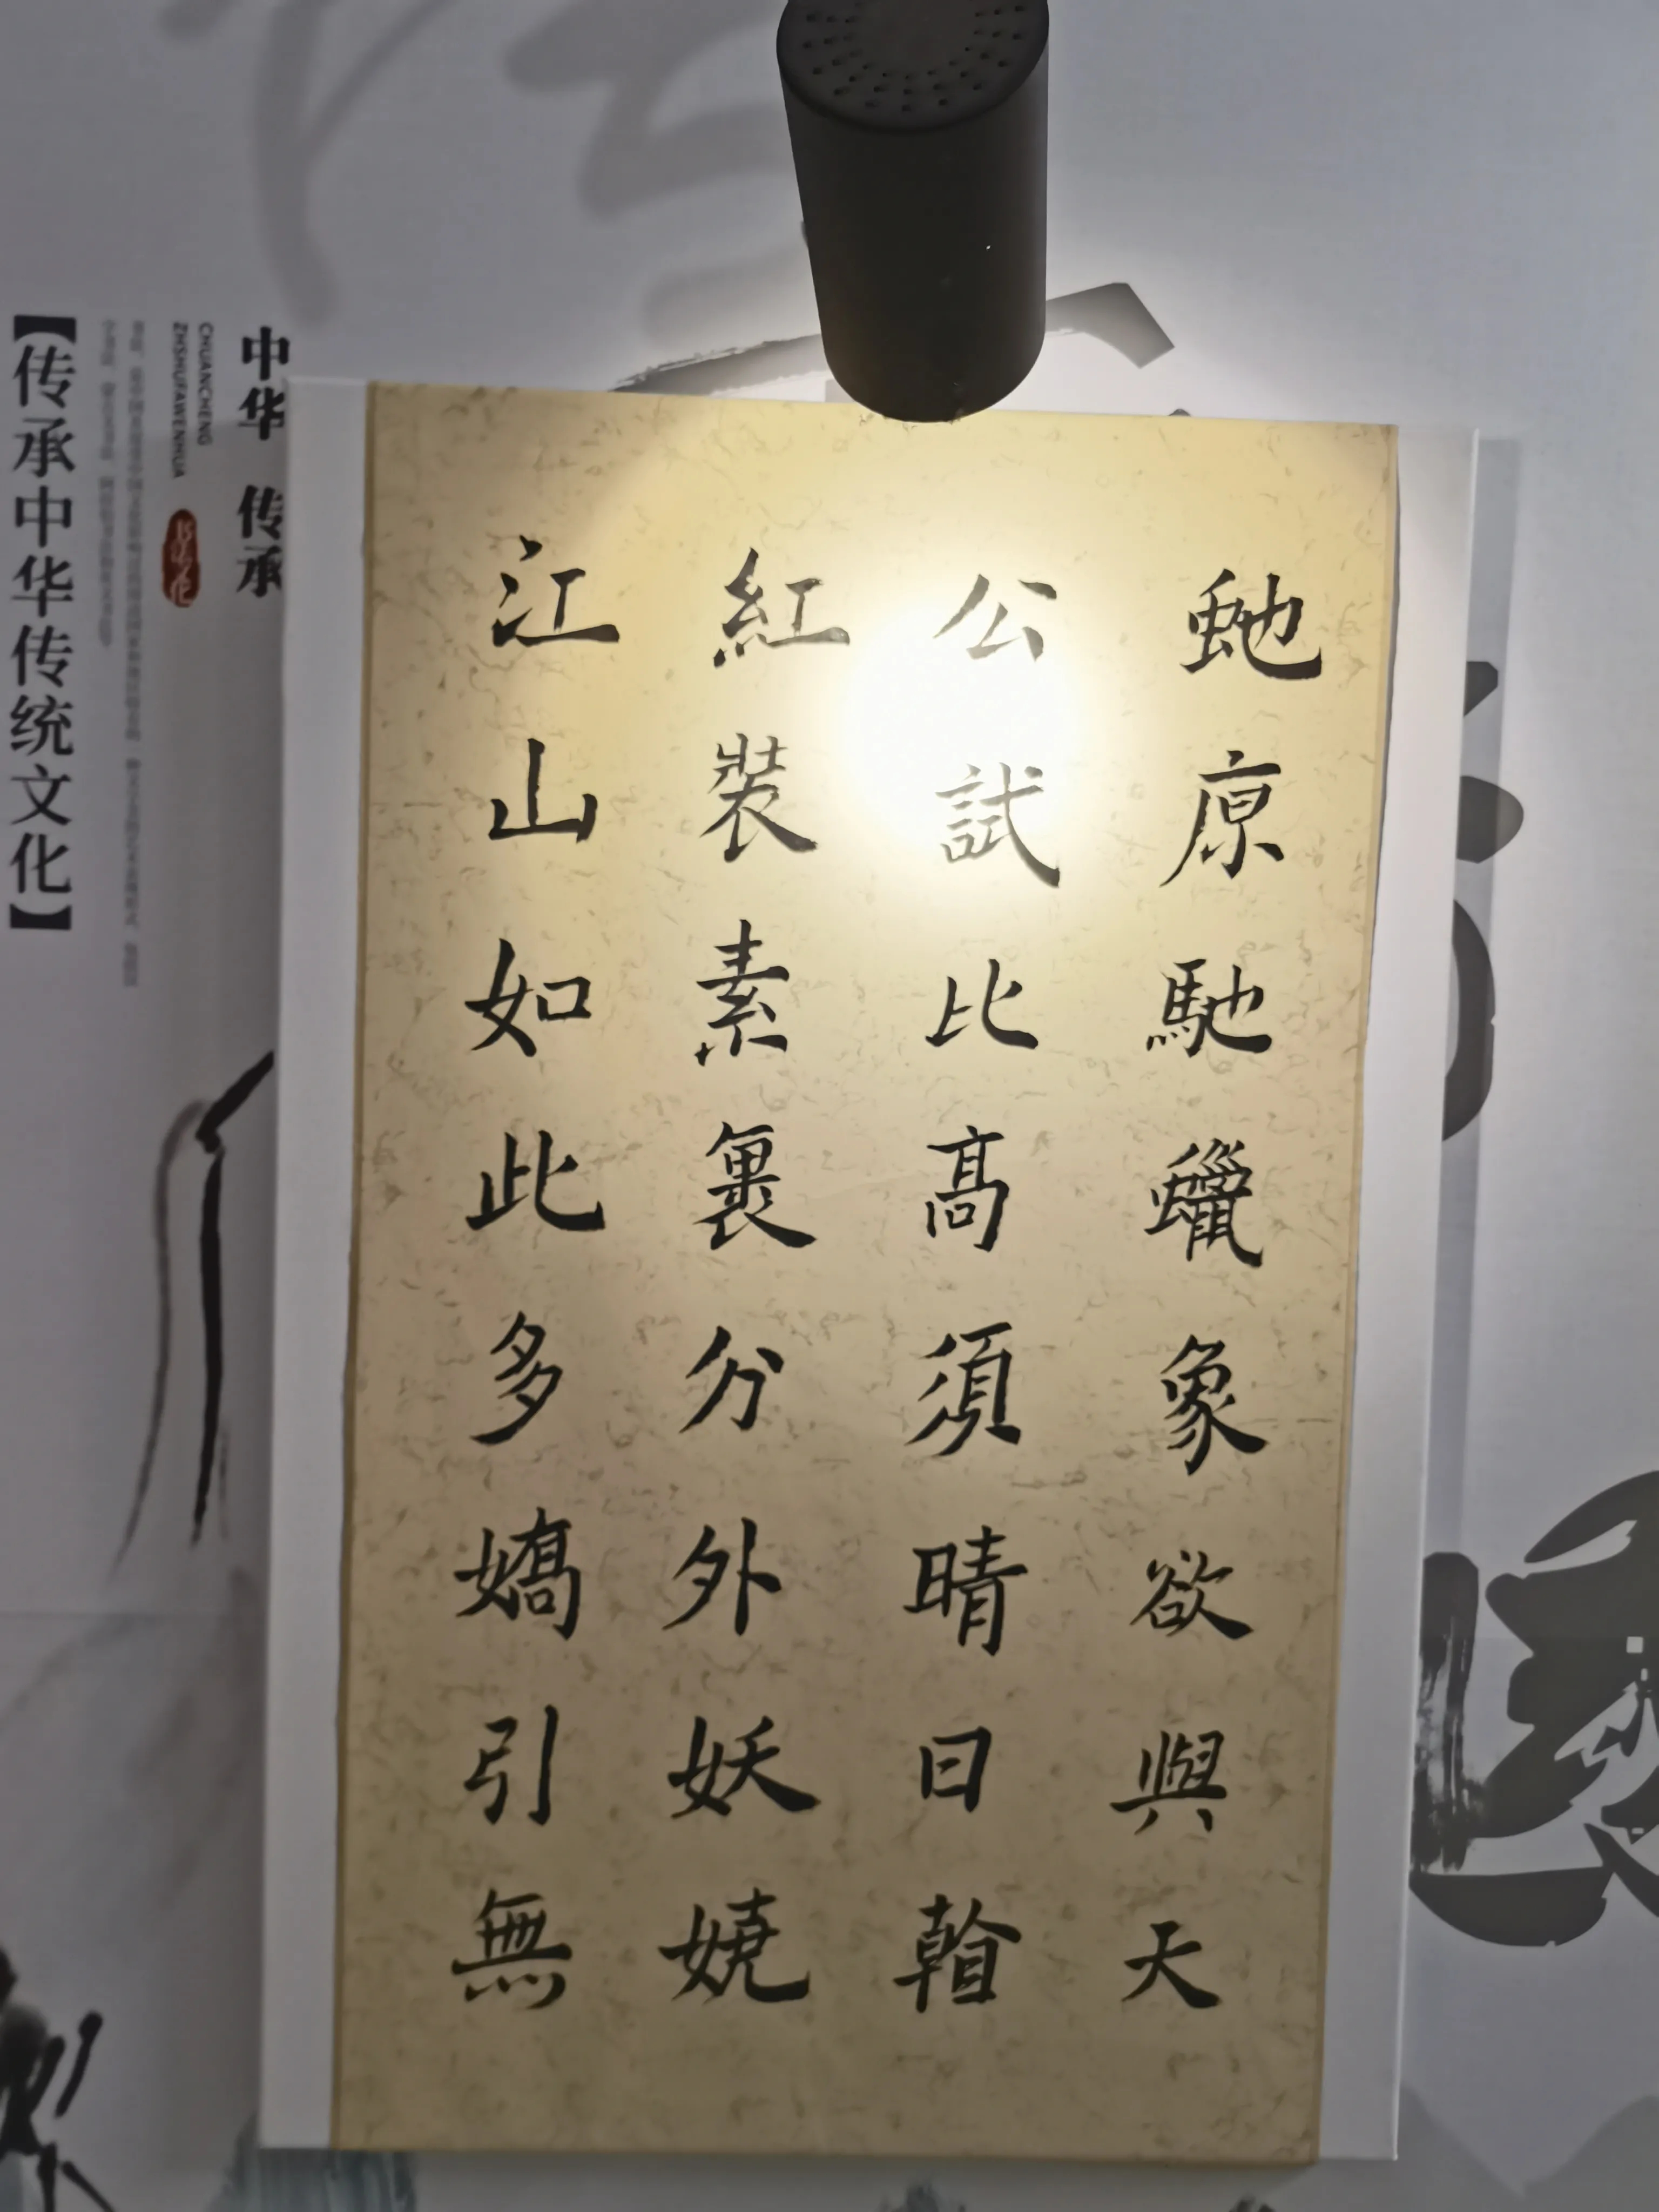 虵原馳蠟象欲與天
公試比高須晴日看
紅裝素裹分外妖嬈
江山如此多嬌引無
中华 传承
CHUANCHENG
ZHSHUFAWENHUA
【传承中华传统文化】